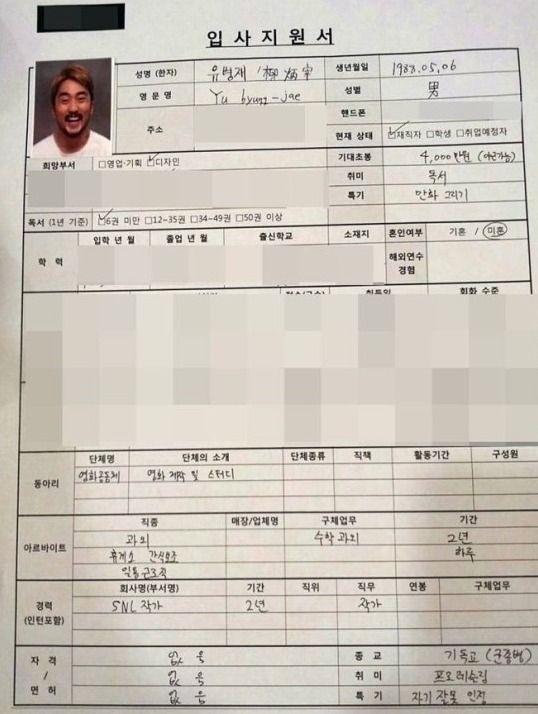 입사지원서
성명 (한자) 유병재 柳炳宰 생년월일 1988.05.06
영문명 Yu byung-jae 성별 男
주소 핸드폰
현재 상태 ☑재직자 □학생 □취업예정자
희망부서 □영업·기획 ☑디자인 기대초봉 4,000만원 (야근가능)
취미 독서
특기 만화 그리기
독서 (1년 기준) ☑6권 미만 □12-35권 □34-49권 □50권 이상
학력 입학 년 월 졸업 년 월 출신학교 소재지 혼인여부 기혼 / 미혼
해외연수 경험
회화 수준
동아리 단체명 단체의 소개 단체종류 직책 활동기간 구성원
영화공동체 영화 제작 및 스터디
아르바이트 직종 매장/업체명 구체업무 기간
과외 수학 과외 2년
휴게소 간식보조 하루
일용근로직
경력 (인턴포함) 회사명(부서명) 기간 직위 직무 연봉 구체업무
SNL 작가 2년 작가
자격 / 면허 없음 종교 기독교 (군종병)
없음 취미 프로레슬링
없음 특기 자기 잘못 인정